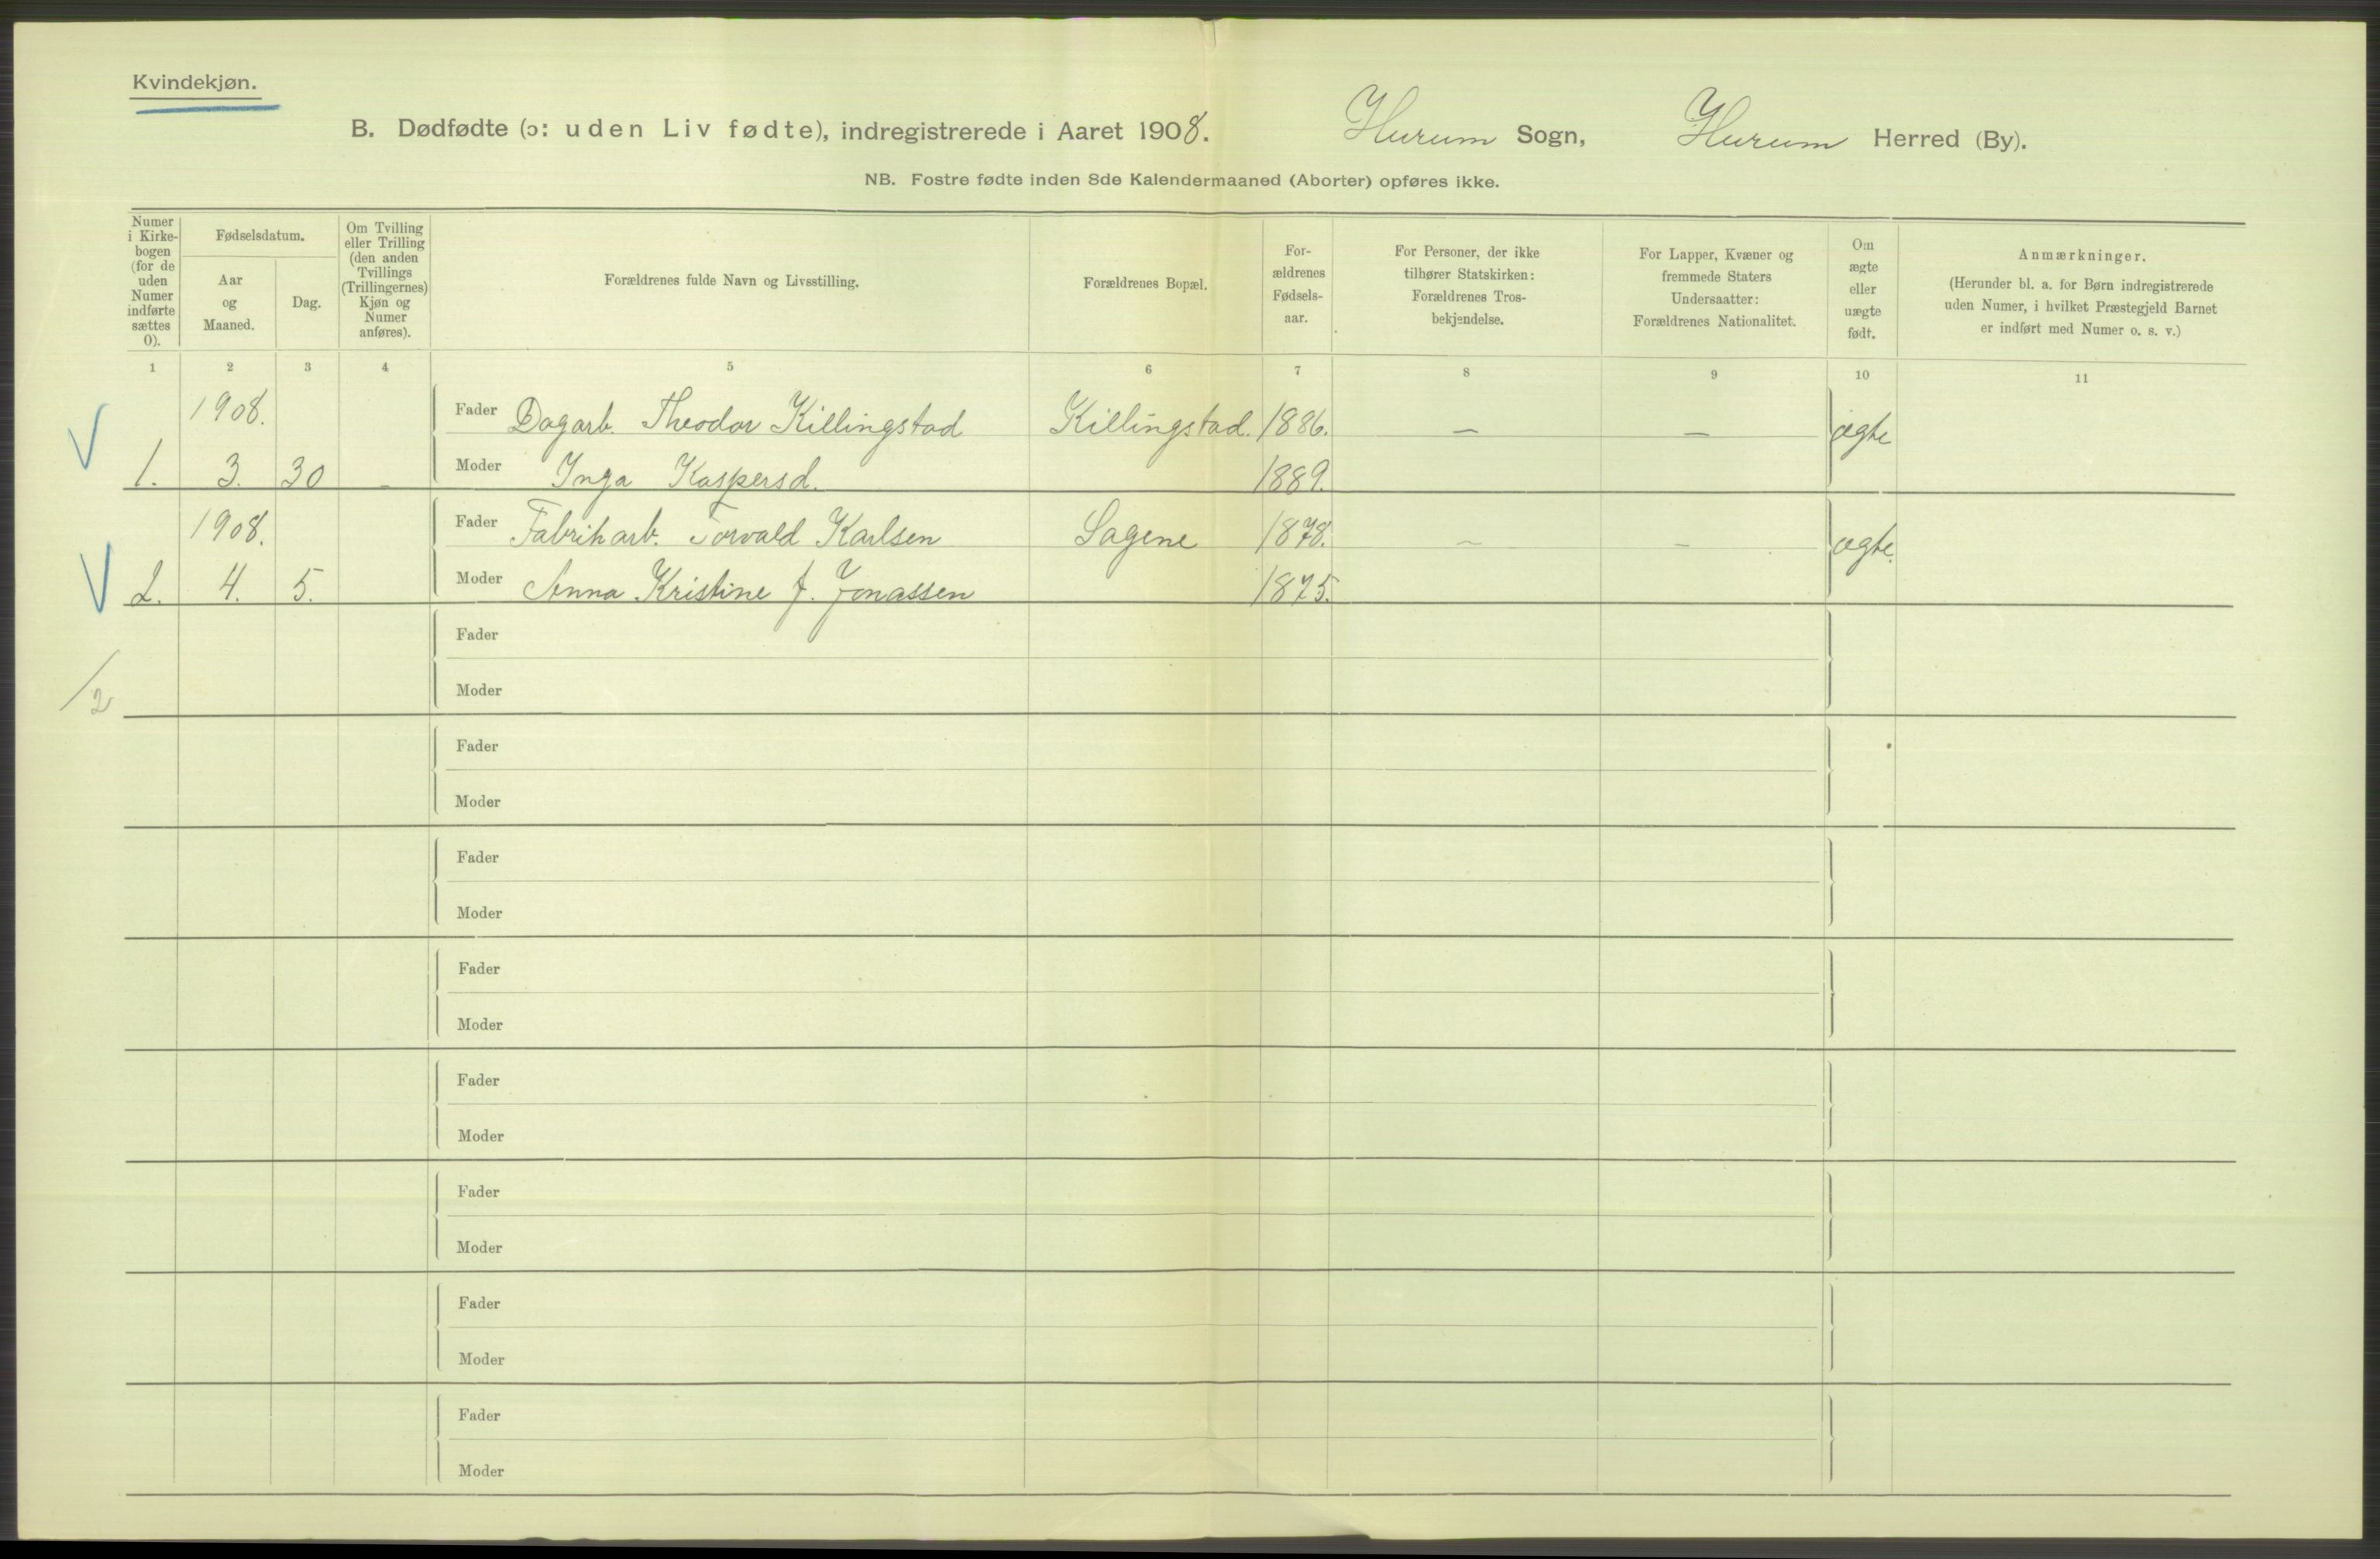 Kvindekjøn.
B. Dødfødte (ɔ: uden Liv fødte), indregistrerede i Aaret 1908. Hurum Sogn, Hurum Herred (By).
NB. Fostre fødte inden 8de Kalendermaaned (Aborter) opføres ikke.
Numer i Kirkebogen (for de uden Numer indførte sættes 0).
Fødselsdatum.
Aar og Maaned.
Dag.
Om Tvilling eller Trilling (den anden Tvillings (Trillingernes) Kjøn og Numer anføres).
Forældrenes fulde Navn og Livsstilling.
Forældrenes Bopæl.
Forældrenes Fødselsaar.
For Personer, der ikke tilhører Statskirken: Forældrenes Trosbekjendelse.
For Lapper, Kvæner og fremmede Staters Undersaatter: Forældrenes Nationalitet.
Om ægte eller uægte født.
Anmærkninger.
(Herunder bl. a. for Børn indregistrerede uden Numer, i hvilket Præstegjeld Barnet er indført med Numer o. s. v.)
1 2 3 4 5 6 7 8 9 10 11
1908. Fader Dagarb. Theodor Killingstad Killingstad. 1886. — — ægte
1. 3. 30 – Moder Inga Kaspersd. 1889.
1908. Fader Fabrikarb. Torvald Karlsen Sagene 1878. — — ægte.
2. 4. 5. Moder Anna Kristine f. Jonassen 1875.
Fader
/2 Moder
Fader
Moder
Fader
Moder
Fader
Moder
Fader
Moder
Fader
Moder
Fader
Moder
Fader
Moder